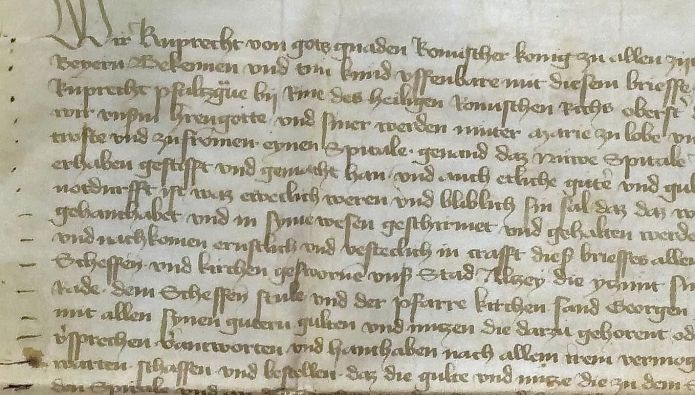 Wir Ruprecht von gots gnaden Romischer konig zu allen zijten
Beyern Bekennen und tun kund uffenbare mit diesem brieffe
Ruprecht pfaltzgraue by Rine des heiligen Romischen Richs oberst
wir unserm herrengotte und siner werden mutter Marie zu lobe und
troste und zufromen eynen Spittale genand daz Nuwe Spittale
erhaben gestifft und gemacht han und auch etliche gute und gul
notdurfft ist waz eweclich weren und bliblich sin sal daz daz
gehanthabet und in syme wesen geschirmet und gehalten werde
und nachkomen ernstlich und vesteclich in crafft dieß brieffes allen
Scheffen und kirchen gesworne unß Stad Altzey die ytzunt sin
Rade dem Scheffen stule und der pfarre kirchen sand Georgen
mit allen synen gutern gulten und nutzen die darzu gehorent od
versprechen verantworten und hanthaben nach allem irem vermog
warten schaffen und bestellen daz die gulte und nutze die zu dem
den Spittale und